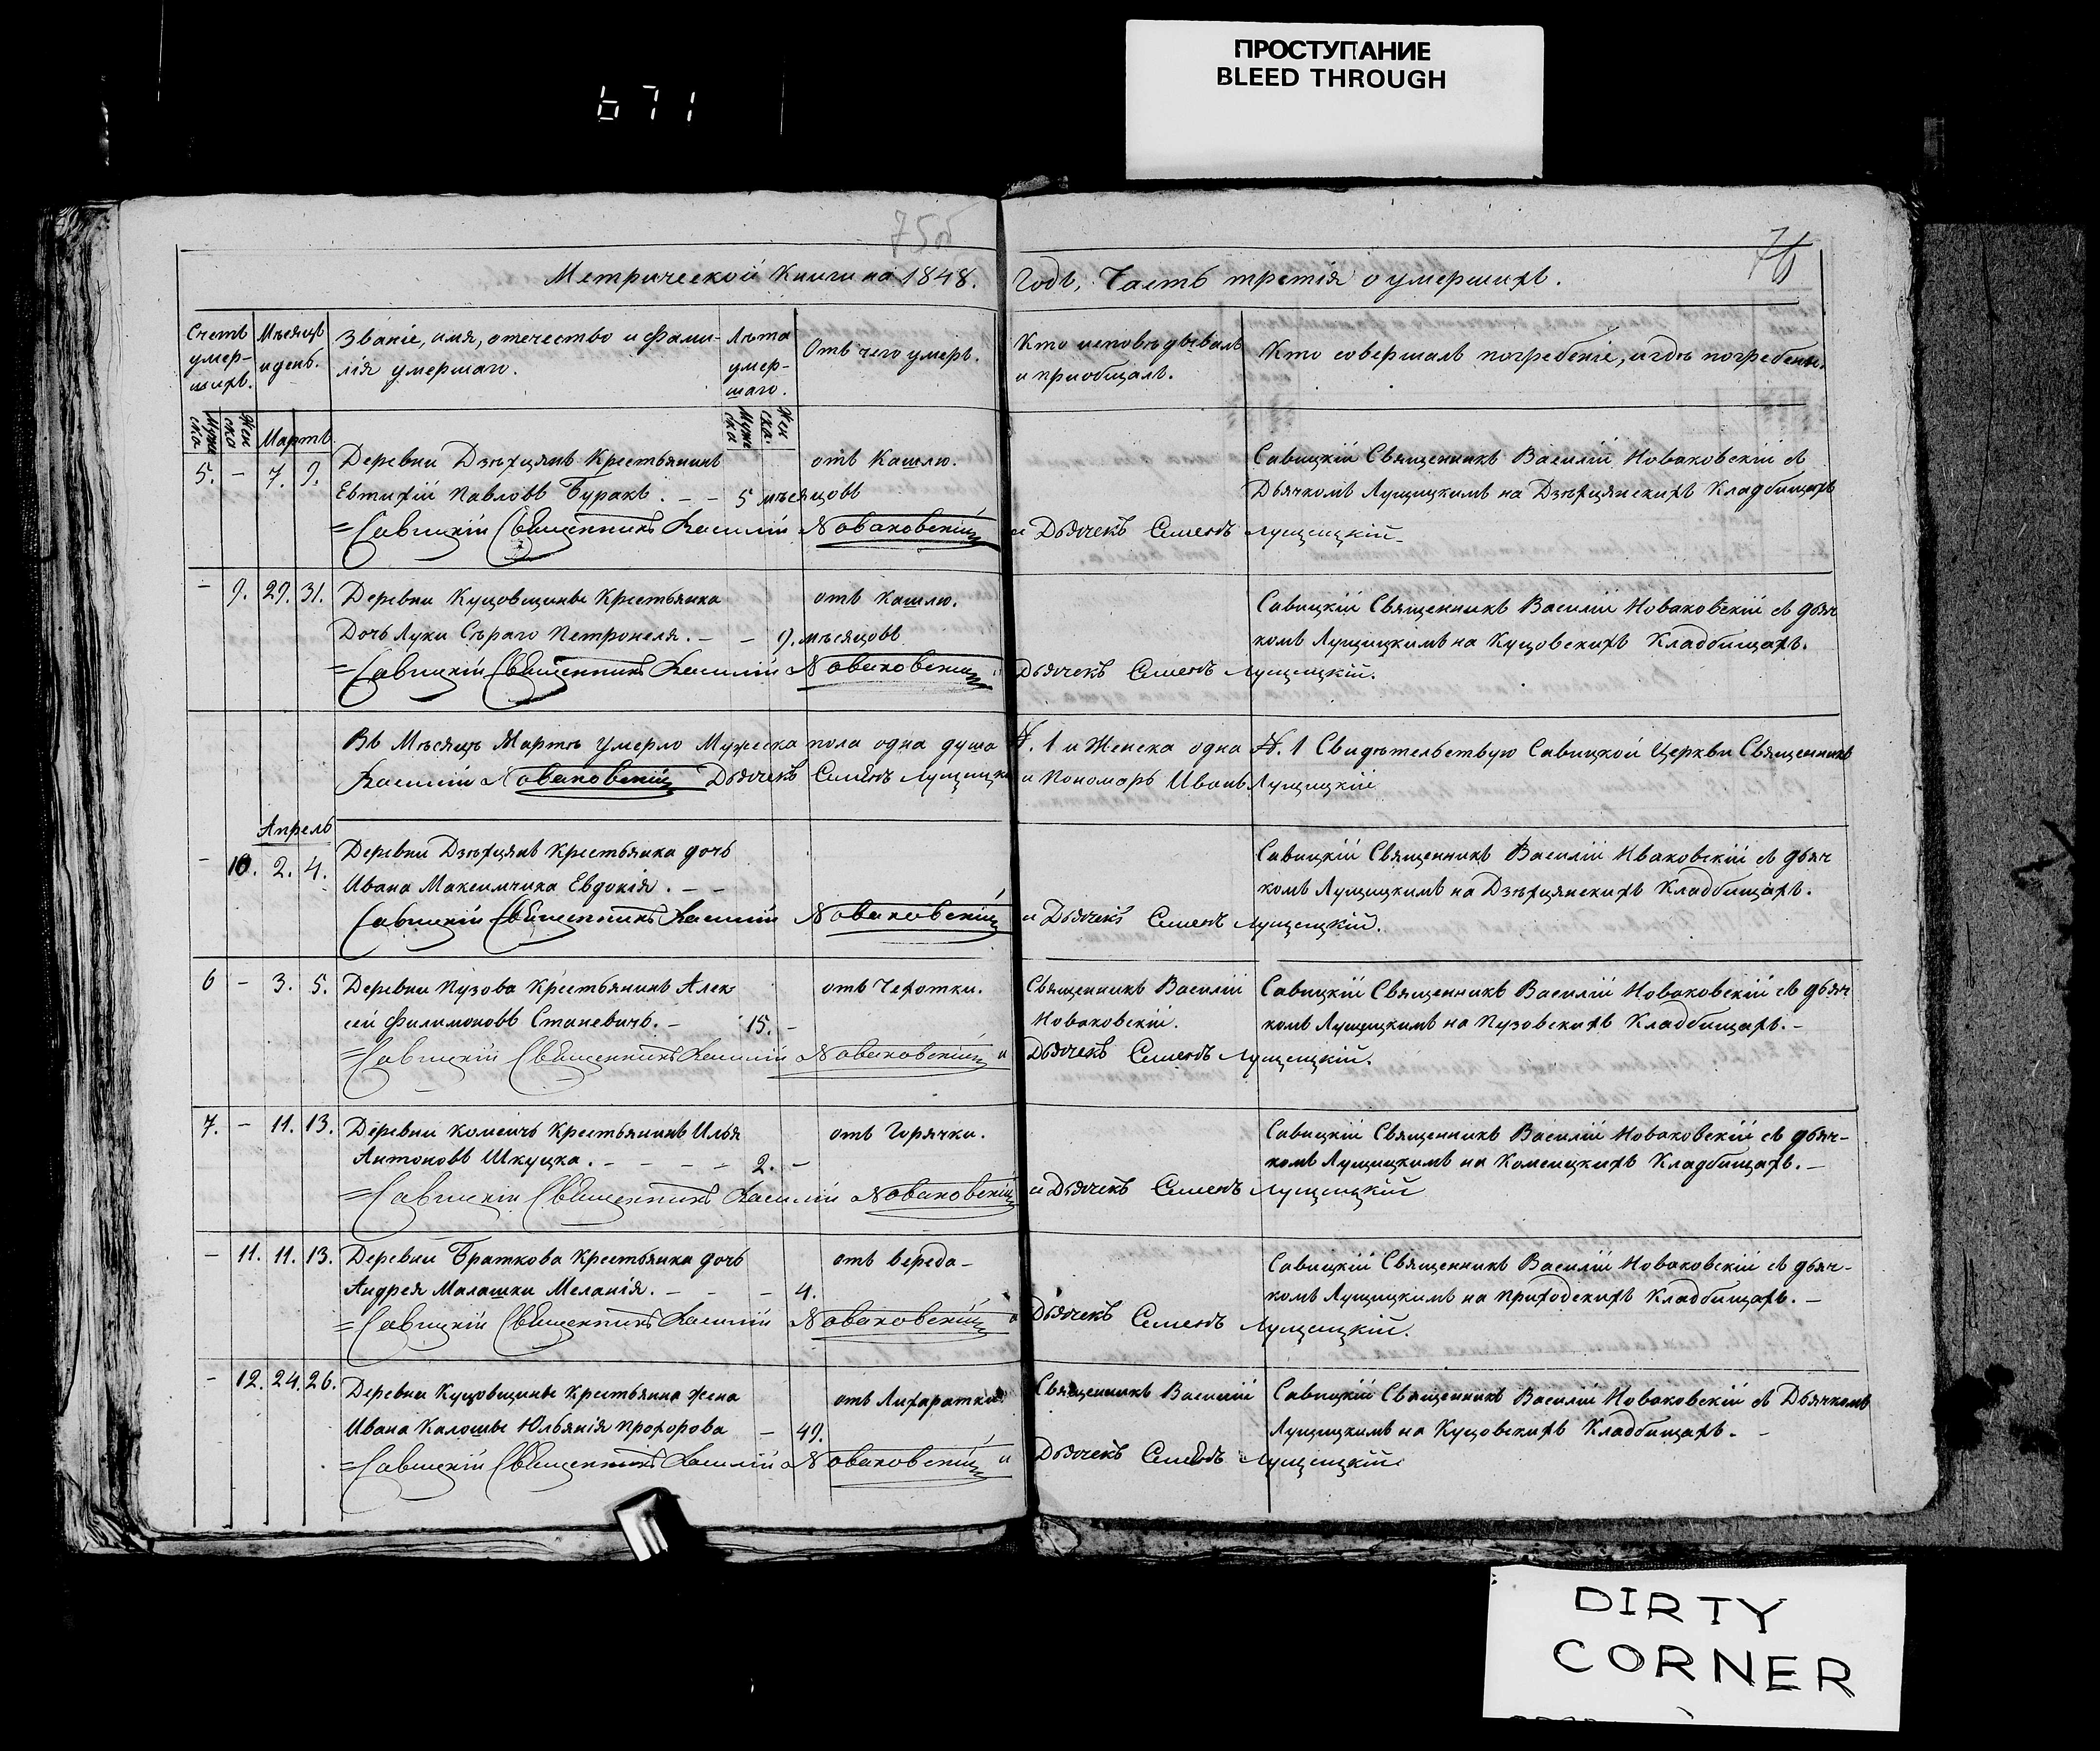 ПРОСТУПАНИЕ
BLEED THROUGH
671
75об
76
Метрической Книги на 1848. Годъ, Часть третія о умершихъ.
Счетъ умер-шихъ.
Мѣсяцъ и день.
Званіе, имя, отечество и фами-
лія умершаго.
Лѣта умер-шаго.
Отъ чего умеръ.
Кто исповѣдывалъ
и пріобщалъ.
Кто совершалъ погребеніе, и гдѣ погребены.
Муже ска
Жен ска
Мартъ
Муже ска
Жен ска.
5. - 7. 9. Деревни Дзѣхцянъ Крестьянинъ отъ Кашлю. Савицкій Священникъ Василій Новаковскій съ
Евтихій Павловъ Буракъ. - - 5 мѣсяцовъ Дьячкомъ Лущицкимъ на Дзѣхцянскихъ Кладбищахъ
=Савицкій Священникъ Василій Новаковскій и Дьячекъ Семенъ Лущицкій.
- 9. 29. 31. Деревни Куцовщины Крестьянка отъ Кашлю. Савицкій Священникъ Василій Новаковскій съ дьяч
Дочь Луки Сѣраго Петронеля. - - 9. мѣсяцовъ комъ Лущицкимъ на Куцовскихъ Кладбищахъ.
=Савицкій Священникъ Василій Новаковскій и Дьячекъ Семенъ Лущицкій.
Въ Мѣсяцѣ Мартѣ Умерло Мужеска пола одна душа N. 1 и Женска одна N. 1 Свидѣтельствую Савицкой Церкви Священникъ
Василій Новаковскій Дьячекъ Семенъ Лущицкій и Пономарь Иванъ Лущицкій
Апрель
- 10. 2. 4. Деревни Дзѣхцянъ Крестьянка дочь Савицкій Священникъ Василій Иваковскій съ дьяч
Ивана Максимчика Евдокія. - - комъ Лущицкимъ на Дзѣхцянскихъ Кладбищахъ.
Савицкій Священникъ Василій Новаковскій и Дьячекъ Семенъ Лущицкій.
6 - 3. 5. Деревни Пузова Крестьянинъ Алек отъ Чехотки. Священникъ Василій Савицкій Священникъ Василій Новаковскій съ дьяч
сей Филимоновъ Станевичъ. - 15. - Новаковскій. комъ Лущицкимъ на Пузовскихъ Кладбищахъ. -
=Савицкій Священникъ Василій Новаковскій и Дьячекъ Семенъ Лущицкій.
7. - 11. 13. Деревни Комсичъ Крестьянинъ Илья отъ Горячки. Савицкій Священникъ Василій Новаковскій съ дьяч-
Антоновъ Шкуцка. - - - - 2. - комъ Лущицкимъ на Комсицкихъ Кладбищахъ. -
=Савицкій Священникъ Василій Новаковскій и Дьячекъ Семенъ Лущицкій
- 11. 11. 13. Деревни Браткова Крестьянка дочь отъ вереда- Савицкій Священникъ Василій Новаковскій съ дьяч-
Андрея Малашки Меланія. - - - 4. комъ Лущицкимъ на Приходскихъ Кладбищахъ. -
=Савицкій Священникъ Василій Новаковскій и Дьячекъ Семенъ Лущицкій.
- 12. 24. 26. Деревни Куцовщины Крестьянка жена отъ Лихаратки Священникъ Василій Савицкій Священникъ Василій Новаковскій съ Дьячкомъ
Ивана Калошы Юльянія Прохорова - 49. Лущицкимъ на Куцовскихъ Кладбищахъ. -
=Савицкій Священникъ Василій Новаковскій и Дьячекъ Семенъ Лущицкій
DIRTY
CORNER